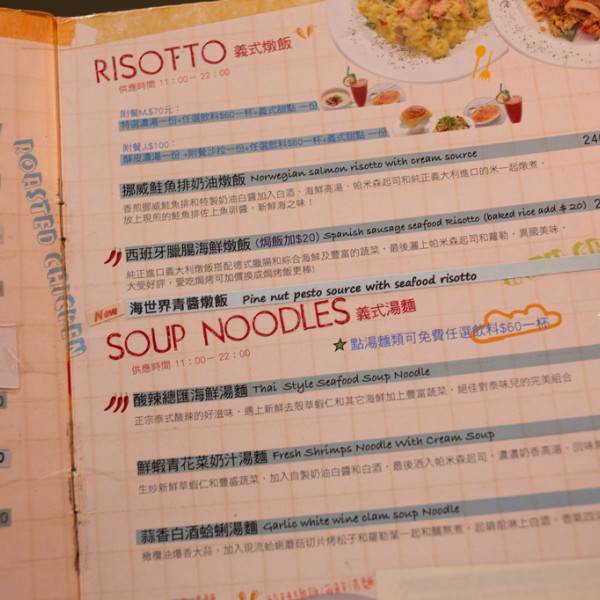 RISOTTO 義式燉飯
供應時間 11：00－22：00
附餐M.$70元：
特選濃湯一份+任選飲料$60一杯+義式甜點 一份
附餐J.$100：
酥皮濃湯一份 +附餐沙拉一份+任選飲料$60一杯+義式甜點 一份
挪威鮭魚排奶油燉飯 Norwegian salmon risotto with cream source
香煎挪威鮭魚排和特製奶油白醬加入白酒、海鮮高湯、帕米森起司和純正義大利進口的米一起燉煮，
放上現煎的鮭魚排佐上魚卵醬，新鮮海之味！
西班牙臘腸海鮮燉飯 (焗飯加$20) Spanish sausage seafood Risotto (baked rice add $20)
純正進口義大利燉飯搭配德式臘腸和綜合海鮮及豐富的蔬菜，最後灑上帕米森起司和蘿勒，異國美味，
大受好評，愛吃焗烤可加價換成焗烤飯更棒!
New 海世界青醬燉飯 Pine nut pesto source with seafood risotto
SOUP NOODLES 義式湯麵
供應時間 11：00－22：00
點湯麵類可免費任選飲料$60一杯
酸辣總匯海鮮湯麵 Thai Style Seafood Soup Noodle
正宗泰式酸辣的好滋味，遇上新鮮去殼草蝦仁和其它海鮮加上豐富蔬菜，絕佳對泰味兒的完美組合
鮮蝦青花菜奶汁湯麵 Fresh Shrimps Noodle With Cream Soup
生炒新鮮草蝦仁和豐盛蔬菜，加入自製奶油白醬和白酒，最後洒入帕米森起司，濃濃奶香高湯，回味
蒜香白酒蛤蜊湯麵 Garlic white wine clam soup Noodle
橄欖油爆香大蒜，加入現流蛤蜊蘑菇切片烤松子和蘿勒葉一起和麵熬煮，起鍋前淋上白酒，香氣四溢
ROASTED CHICKEN